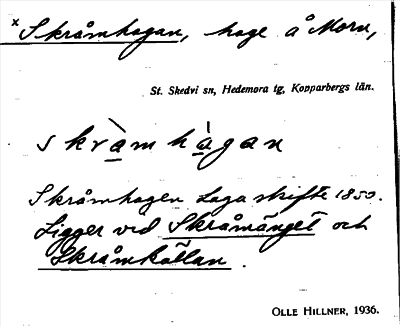 x Skråmhagan, hage å Morn,
St. Skedvi sn, Hedemora tg, Kopparbergs län.
skràmhàgan
Skråmhagen Laga skifte 1850.
Ligger ved Skråmänget och
Skråmkällan.
OLLE HILLNER, 1936.